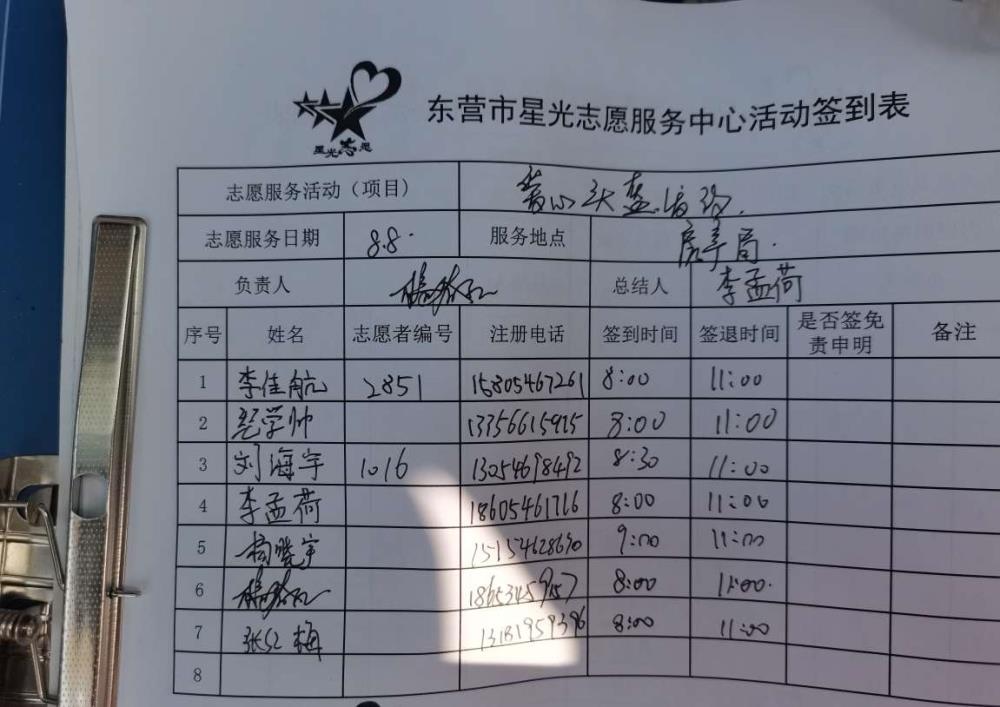 星光志愿
东营市星光志愿服务中心活动签到表
志愿服务活动（项目）
志愿服务日期 8.8. 服务地点
负责人 总结人 李孟荷
序号 姓名 志愿者编号 注册电话 签到时间 签退时间 是否签免责申明 备注
1 李佳航 2851 15805467261 8:00 11:00
2 学帅 8:00 11:00
3 刘海宇 1016 13054698492 8:30 11:00
4 李孟荷 18605461716 8:00 11:00
5 杨晓宇 15154628690 9:00 11:00
6 8:00 11:00.
7 张红梅 8:00 11:00
8